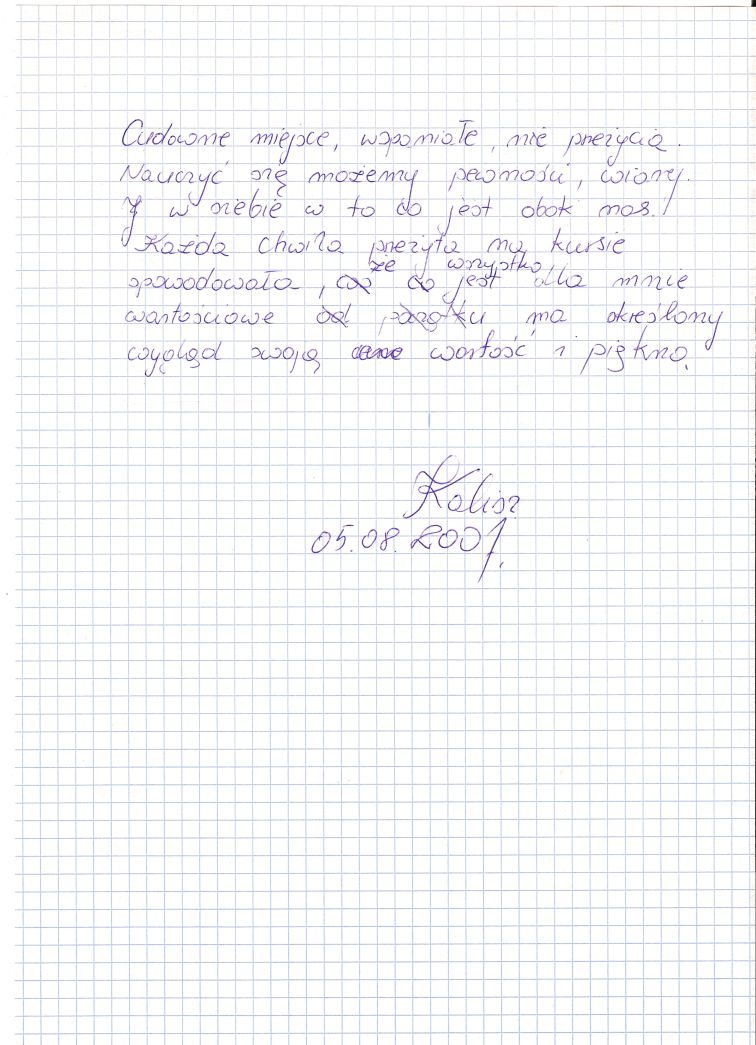 Cudowne miejce, wspaniałe, nie przeżycia.
Nauczyć się możemy pewności, wiary.
I w siebie w to co jest obok nas.
Każda chwila przeżyta na kursie
że wszystko
spowodowała, co co jest dla mnie
wartościowe od początku ma określony
wygląd swoją wartość i piękno.
Kalisz
05.08.2007.